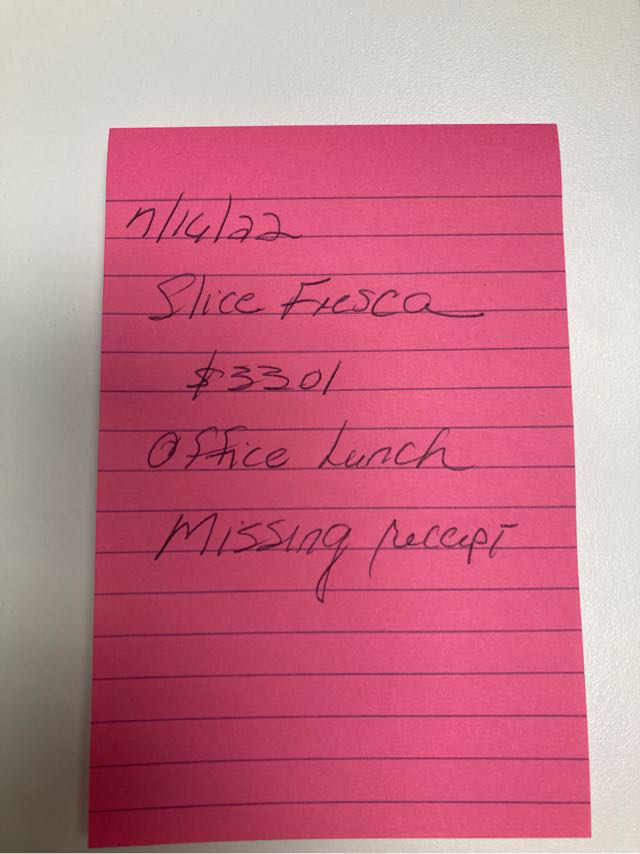 7/14/22
Slice Fresca
$3301
Office Lunch
Missing receipt